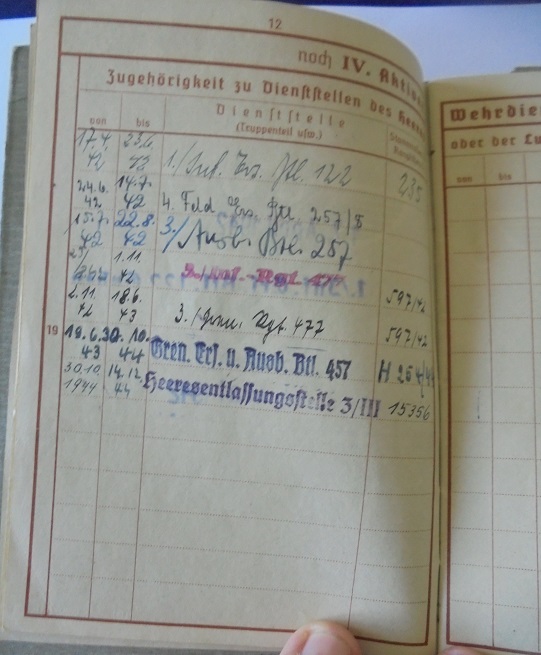 12
noch IV. Aktiv
Zugehörigkeit zu Dienststellen des Heeres
von bis Dienststelle
(Truppenteil usw.)
17.4. 42 23.6. 42 1./Inf. Ers. Btl. 122 235
24.6. 42 14.7. 42 4. Feld Ers. Btl. 257/5
15.7. 42 22.8. 42 3./Ausb. Btl. 257
1.11. 42 597/42
2.11. 42 18.6. 43 3./Gren. Rgt. 477 597/42
19 19.6. 43 30.10. 44 Gren. Ers. u. Ausb. Btl. 457 H
30.10. 1944 14.12. 44 Heeresentlassungsstelle 3/III 15356
Wehrdie
oder der Lu
von bis